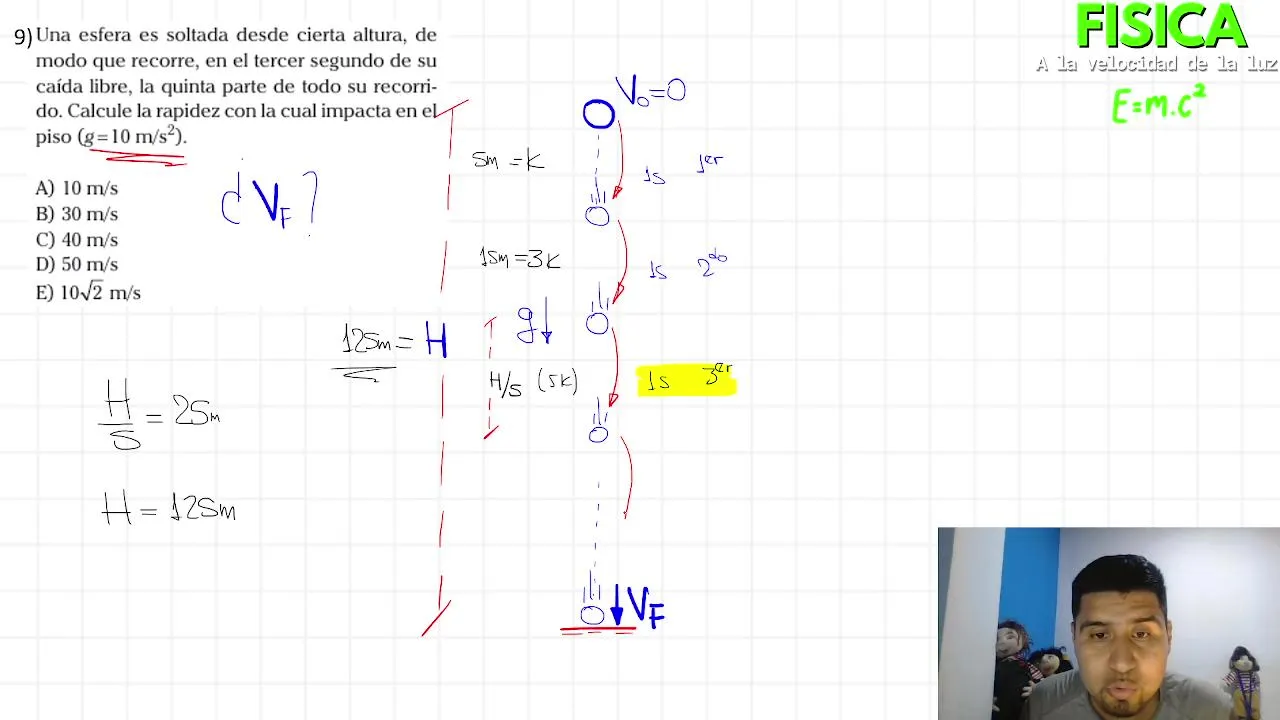 9) Una esfera es soltada desde cierta altura, de
modo que recorre, en el tercer segundo de su
caída libre, la quinta parte de todo su recorri-
do. Calcule la rapidez con la cual impacta en el
piso (g = 10 m/s²).
A) 10 m/s
B) 30 m/s
C) 40 m/s
D) 50 m/s
E) 10√2 m/s
¿ V_F ?
H/5 = 25m
H = 125m
125m = H
5m = k
15m = 3k
g↓
H/5 (5k)
V₀=0
1s 1er
1s 2do
1s 3er
V_F
FISICA
A la velocidad de la luz
E=m.c²